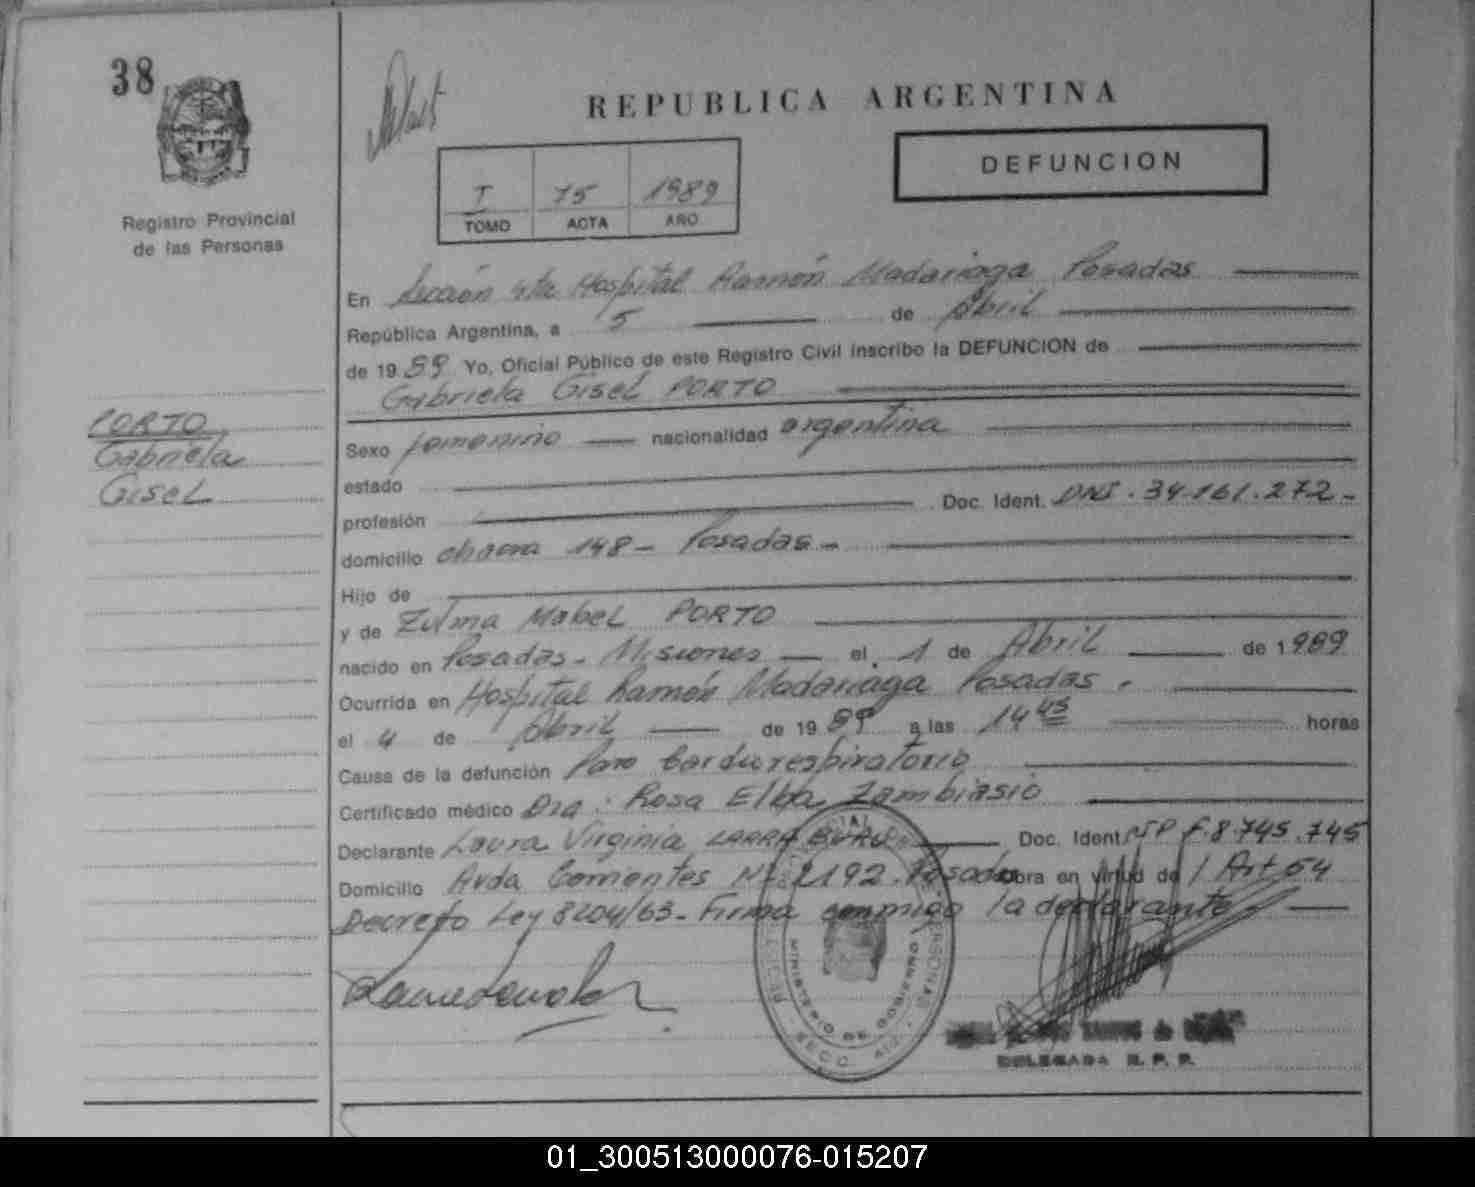 38
REPUBLICA ARGENTINA
DEFUNCION
I 75 1989
TOMO ACTA AÑO
Registro Provincial
de las Personas
En Sección 4ta Hospital Ramón Madariaga Posadas
República Argentina, a 5 de Abril
de 1989 Yo, Oficial Público de este Registro Civil inscribo la DEFUNCION de
Gabriela Gisel PORTO
PORTO
Gabriela
Gisel
Sexo femenino nacionalidad argentina
estado
profesión Doc. Ident. DNI. 34.161.272-
domicilio chacra 148- Posadas-
Hijo de
y de Zulma Mabel PORTO
nacido en Posadas- Misiones el 1 de Abril de 1989
Ocurrida en Hospital Ramón Madariaga Posadas.
el 4 de Abril de 1989 a las 14 45 horas
Causa de la defunción Paro Cardiorespiratorio
Certificado médico Dra. Rosa Elba Zambiasio
Declarante Laura Virginia LARRABURU Doc. Ident. F.8.745.745
Domicilio Avda Corrientes Nº 2192. Posadas Obra en virtud de / Art 64
Decreto Ley 8204/63- Firma conmigo la declarante
MINISTERIO DE GOBIERNO
SECC. 4ta.
DELEGADA R. P. P.
01_300513000076-015207